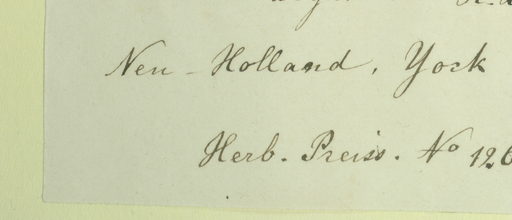 Neu-Holland, York
Herb. Preiss. No 126